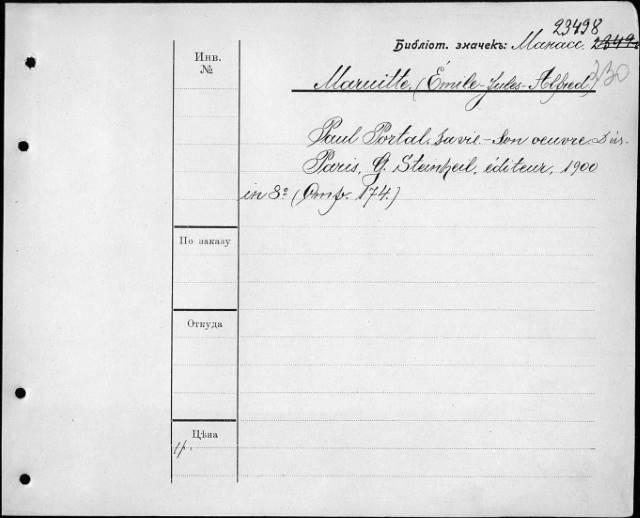 23498
Библіот. значекъ: Манасс. 2349
Инв. №
230
Maruitte, (Émile-Jules-Alfred)
Paul Portal, sa vie. - Son oeuvre Dis-
Paris, G. Steinheil, éditeur, 1900
in 8º (Стр. 174.)
По заказу
Откуда
Цѣна